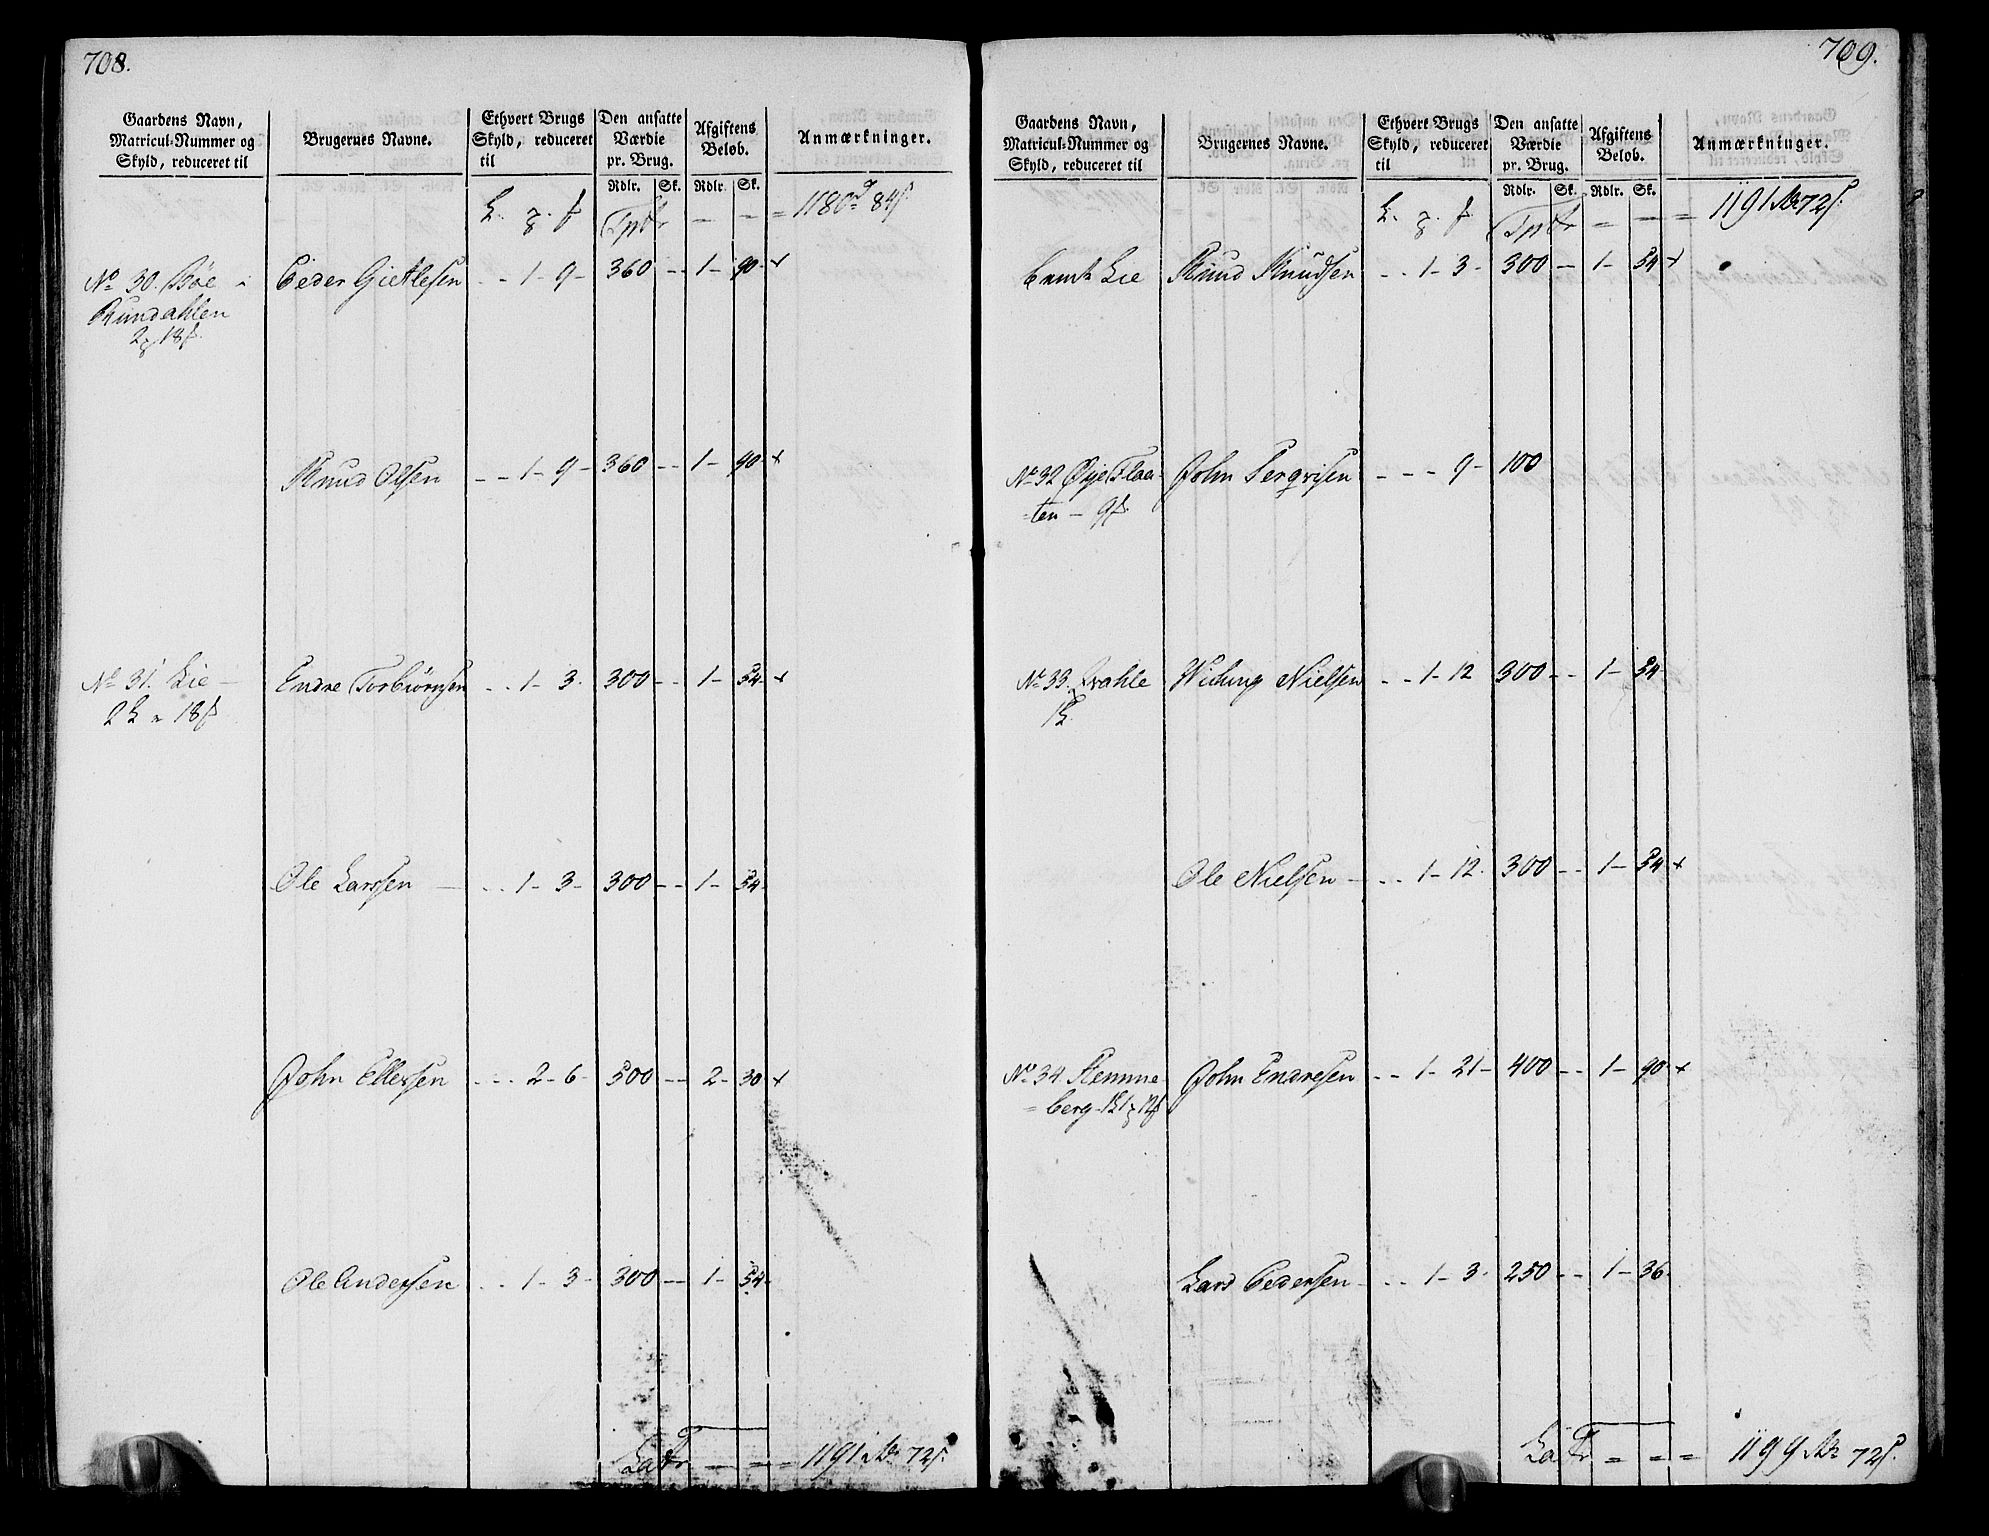 708.
Gaardens Navn,
Matricul-Nummer og
Skyld, reduceret til
Brugernes Navne.
Ethvert Brugs
Skyld, reduceret
til
Den ansatte
Værdie
pr. Brug.
Afgiftens
Beløb.
Anmærkninger.
Rdlr. Sk. Rdlr. Sk.
Tpr - - = 1180 84
No 30. Bøe i Peder Gietlesen - - 1 - 9 - 360 - - 1 - 90 - +
Rundahlen
2 18
Knud Olsen - - 1 - 9 - 360 - - 1 - 90 +
No 31. Lie - Endre Torbiørnsen - - 1 - 3 - 300 - - 1 - 54 - +
2 " 18
Ole Larssen - - - 1 - 3 - 300 - - 1 - 54 -
John Ellefsen - - - 2 - 6 - 500 - - 2 - 30 +
Ole Andersen - - 1 - 3 - 300 - - 1 - 54 -
Latr - = = 1191 72
709.
Gaardens Navn,
Matricul-Nummer og
Skyld, reduceret til
Brugernes Navne.
Ethvert Brugs
Skyld, reduceret
til
Den ansatte
Værdie
pr. Brug.
Afgiftens
Beløb.
Anmærkninger.
Rdlr. Sk. Rdlr. Sk.
Tpr = - = 1191 72
Lie Knud Knudsen - - 1 - 3 - 300 - - 1 - 54 +
No 32 Øye Flaa- John Tergvisen - - - 9 - 100
=ten - 9
No 33. Qvahle Nielsen - - 1 - 12 300 - - 1 - 54
1
Ole Nielsen - - - 1 - 12. 300 - - 1 - 54 +
No 34. Stemme John Endresen - - 1 - 21 - 400 - - 1 - 90 +
=berg 1 1 12
Lars Pedersen - - - 1 - 3 - 250 - - 1 - 36 -
Latr = = = 1199 72